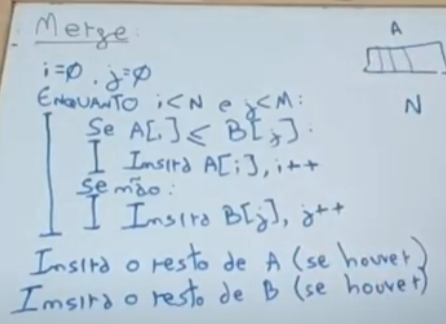 Merge:
A
i=0, j=0
ENQUANTO i<N e j<M:
N
Se A[i] ≤ B[j]:
Insira A[i], i++
Se não:
Insira B[j], j++
Insira o resto de A (se houver)
Insira o resto de B (se houver)